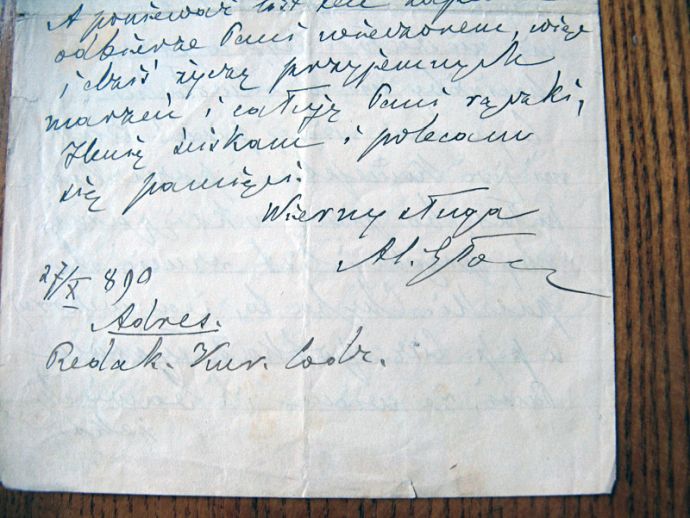 A ponieważ list ten
odbierze Pani wieczorem, więc
i dziś życzę przyjemnych
marzeń i całuję Pani rączki,
ściskam i polecam
się pamięci.
Wierny sługa
Al.
27/X 890
Adres.
Redak. Kur. Codz.